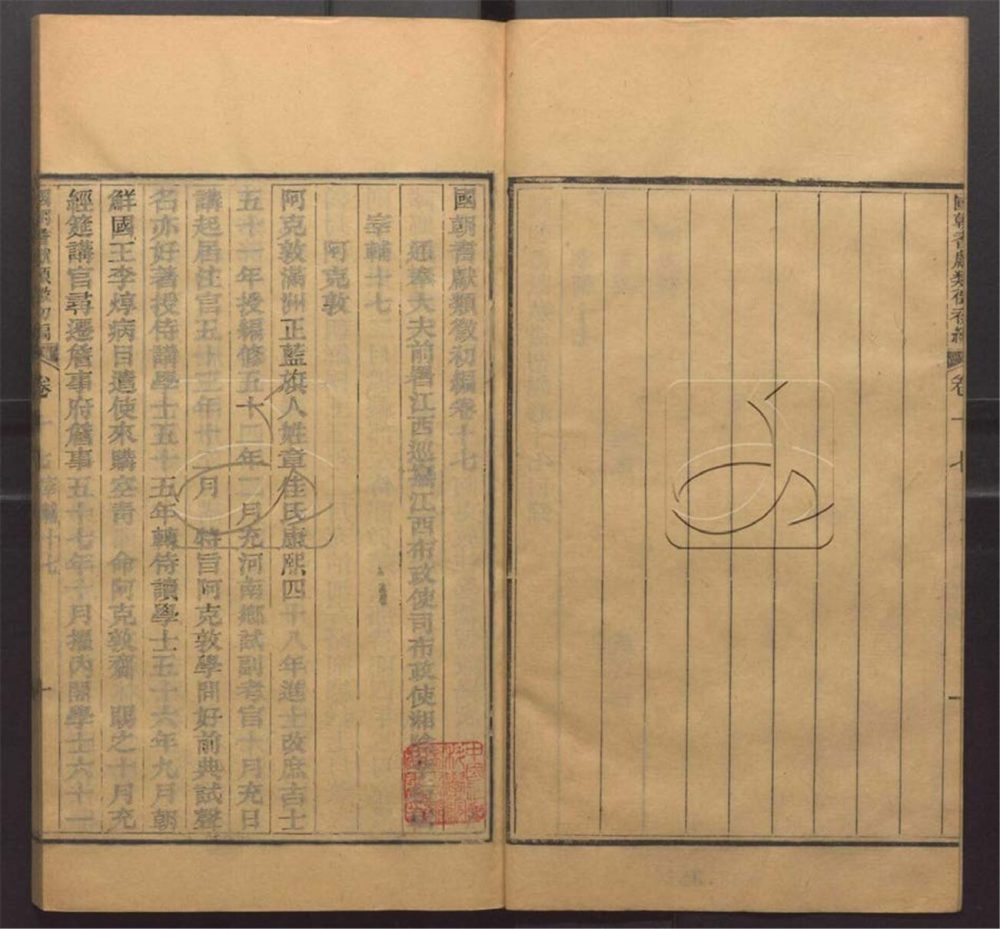 國朝耆獻類徵初編
卷十七
國朝耆獻類徵初編卷十七
通奉大夫前署江西巡撫江西布政使司布政使湘陰李
宰輔十七
阿克敦
阿克敦滿洲正藍旗人姓章佳氏康熙四十八年進士改庶吉士
五十一年授編修五十二年二月充河南鄉試副考官十月充日
講起居注官五十三年十二月 特旨阿克敦學問好前典試聲
名亦好著授侍講學士五十五年轉侍讀學士五十六年九月朝
鮮國王李焞病目遣使來購空青 命阿克敦齎 賜之十月充
經筵講官尋遷詹事府詹事五十七年十月擢內閣學士六十一
國朝耆獻類徵初編
卷十七
宰輔十七
一